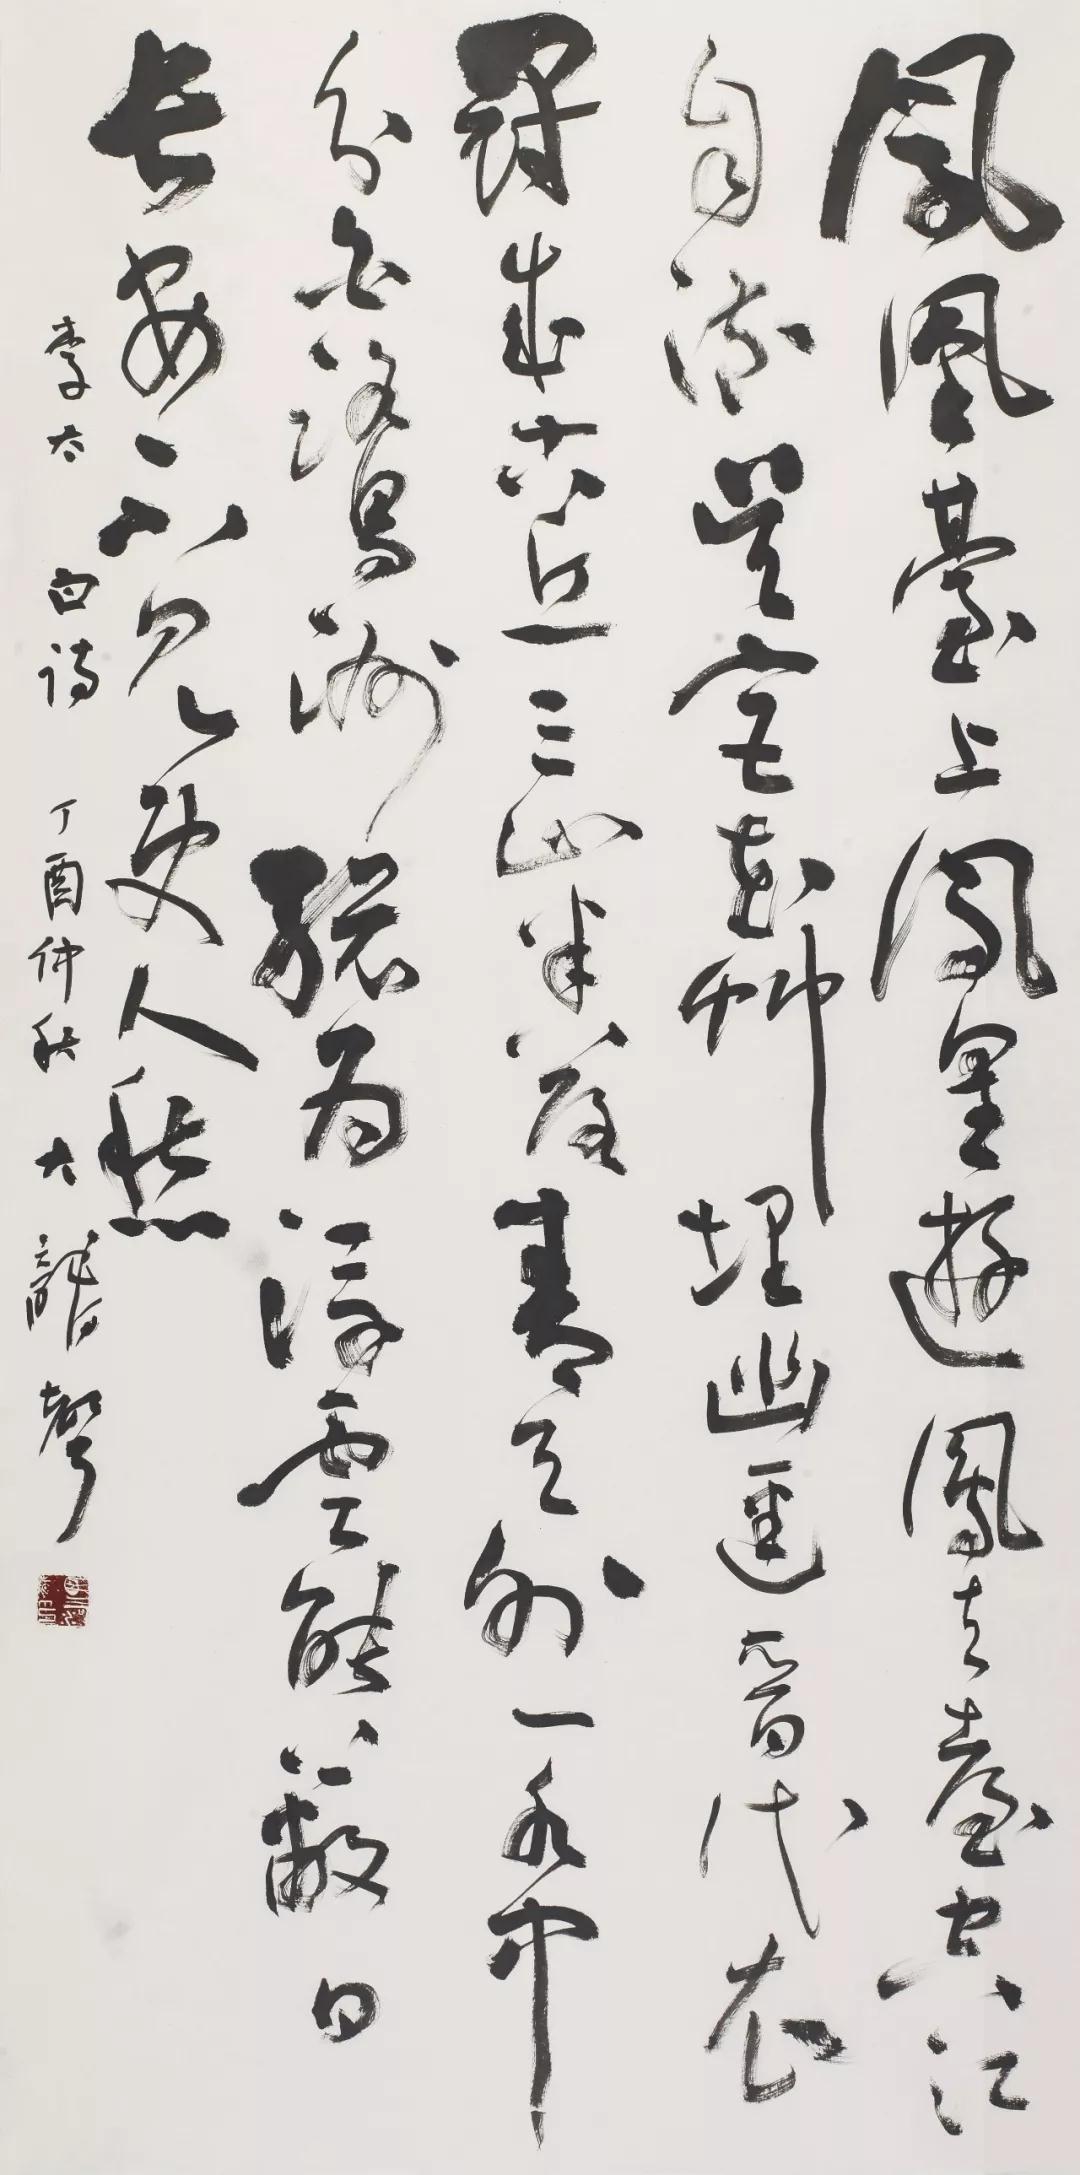 鳳凰臺上鳳皇遊鳳去臺空江
自流吴宫花艸埋幽逕晋代衣
冠成古丘三山半落青天外一水中
分白鷺洲總为浮雲能蔽日
长安不见使人愁
李太白诗 丁酉仲秋 大